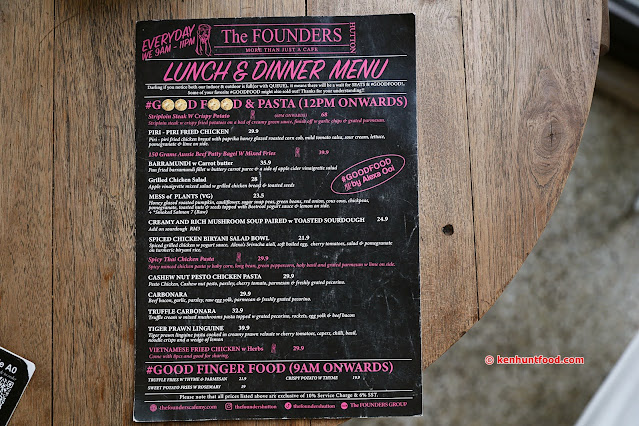 EVERYDAY
WE 9AM - 11PM
The FOUNDERS
HUTTON
MORE THAN JUST A CAFE
LUNCH & DINNER MENU
Darling if you notice both our indoor & outdoor is full(or with QUEUE), it means there will be a wait for SEATS & #GOODFOOD!,
Some of your favorite #GOODFOOD might also sold out! Thanks for your understanding!!
#GOOD FOOD & PASTA (12PM ONWARDS)
Striploin Steak W Crispy Potato (6PM ONWARDS) 68
Striploin steak w crispy fried potatoes on a bed of creamy green sauce, finished w garlic chips & grated parmesan.
PIRI - PIRI FRIED CHICKEN 29.9
Piri - piri fried chicken bread with paprika honey glazed roasted corn cob, mild tomato salsa, sour cream, lettuce,
pomegranate & lemon on side.
150 Grams Aussie Beef Patty Bagel W Mixed Fries 39.9
BARRAMUNDI w Carrot butter 35.9
Pan fried barramundi fillet w buttery carrot puree & a side of apple cider vinaigrette salad
Grilled Chicken Salad 28
Apple vinaigrette mixed salad w grilled chicken breast & toasted seeds
#GOODFOOD
by Alexa Ooi
MESS of PLANTS (VG) 23.5
Honey glazed roasted pumpkin, cauliflower, sugar snap peas, green beans, red onion, cous cous, chickpeas,
pomegranate, toasted nuts & seeds topped with beetroot yogurt sauce & lemon on side.
+ *Smoked Salmon 7 (Raw)
CREAMY AND RICH MUSHROOM SOUP PAIRED w TOASTED SOURDOUGH 24.9
Add on sourdough RM3
SPICED CHICKEN BIRYANI SALAD BOWL 21.9
Spiced grilled chicken w yogurt sauce, Alexa's Sriracha aioli, soft boiled egg, cherry tomatoes, salad & pomegranate
on turmeric biryani rice.
Spicy Thai Chicken Pasta 29.9
Spicy minced chicken pasta w baby corn, long bean, green peppercorn, holy basil and grated parmesan w lime on side.
CASHEW NUT PESTO CHICKEN PASTA 29.9
Pesto Chicken, Cashew nut pasta, parsley, cherry tomato, parmesan & freshly grated pecorino.
CARBONARA 29.9
Beef bacon, garlic, parsley, raw egg yolk, parmesan & freshly grated pecorino.
TRUFFLE CARBONARA 32.9
Truffle cream w mixed mushrooms pasta topped w grated pecorino, rockets, egg yolk & beef bacon
TIGER PRAWN LINGUINE 39.9
Tiger prawn linguine pasta cooked in creamy prawn veloute w cherry tomatoes, capers, chilli, basil,
noodle crisps and a wedge of lemon
VIETNAMESE FRIED CHICKEN w Herbs 29.9
Come with 8pcs and good for sharing.
#GOOD FINGER FOOD (9AM ONWARDS)
TRUFFLE FRIES W THYME & PARMESAN 21.9 CRISPY POTATO W THYME 19.9
SWEET POTATO FRIES W ROSEMARY 19
Please note that all prices listed above are exclusive of 10% Service Charge & 6% SST.
thefoundersacademy.com thefoundershutton thefoundershutton The FOUNDERS GROUP
e A0
© kenhuntfood.com